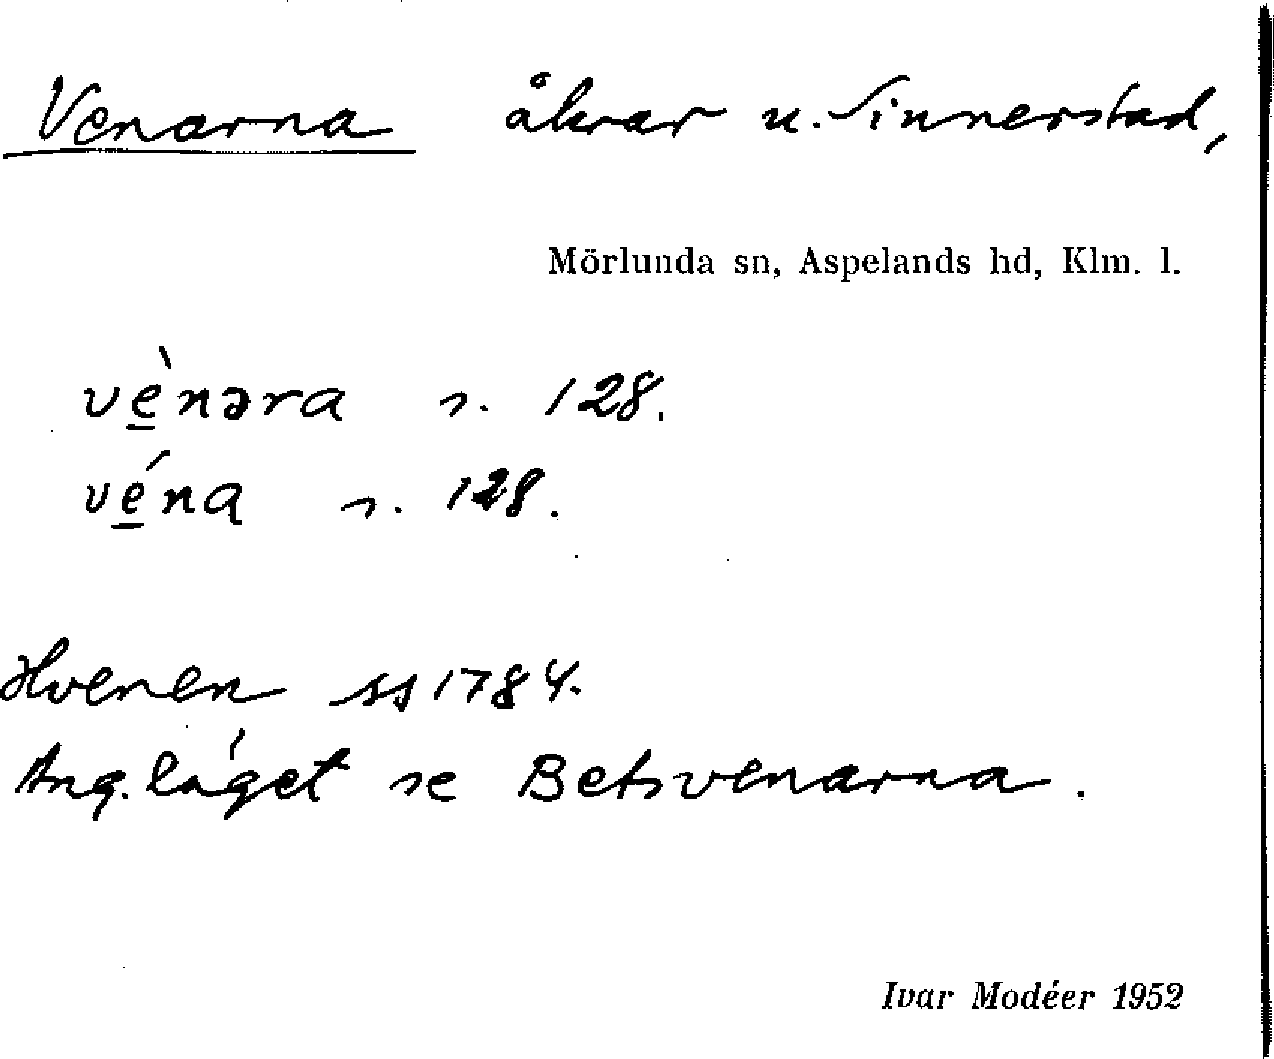 Venarna åkrar u. Sinnerstad,
Mörlunda sn, Aspelands hd, Klm. l.
vè̱nəra s. 128.
vé̱na s. 128.
Hvenen ss 1784.
Ang. läget se Betsvenarna.
Ivar Modéer 1952